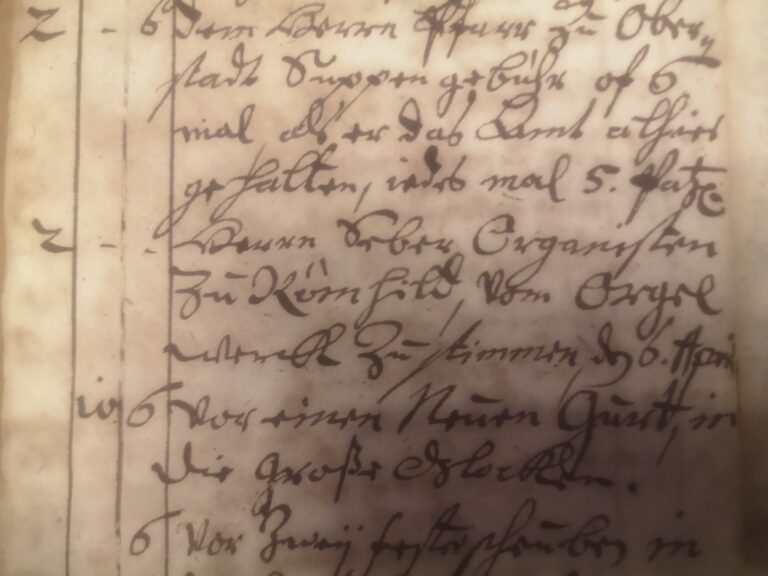 2 - 6 Dem Herrn Pfarr zu Ober-
stadt Suppengebühr of 6
mal, als er das Ambt alhier
gehalten, iedes mal 5. Patz.
2 - - Herrn Seber, Organisten
zu Römhild, vom Orgel
werck zu stimmen, den 6. April
10 6 vor einen Neuen Gurt, in
die große Glocken.
6 vor zweÿ fensterscheuben in